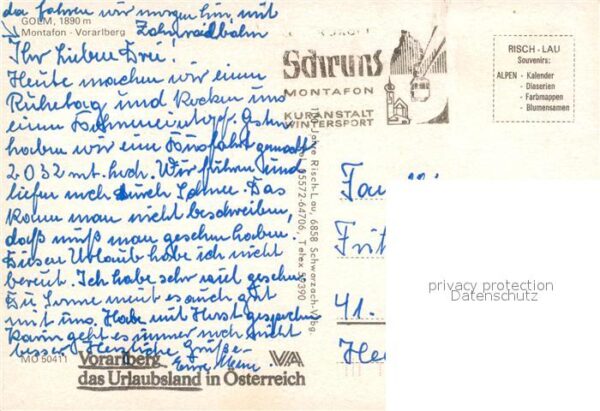 da fahren wir morgen hin, mit
GOLM, 1890 m
Montafon - Vorarlberg
Zahnradbahn
Ihr Lieben Drei!
Heute machen wir einen
Ruhetag und kochen uns
einen Gestern
haben wir eine gemacht
2032 mt. hoch. Wir fuhren und
liefen nach durch Schnee. Das
kann man nicht beschreiben,
daß muß man gesehen haben.
Diesen Urlaub habe ich nicht
bereut. Ich habe sehr viel gesehen.
Die Sonne meint es auch gut
mit uns. Habe mit Horst gesprochen
Karin geht es immer noch nicht
besser. Herzliche Grüße
Eure
MO 50411
Vorarlberg
das Urlaubsland in Österreich
VA
Schruns
MONTAFON
KURANSTALT
WINTERSPORT
Jahre Risch-Lau, 6858 Schwarzach-Vbg.
05572-64706, Telex
RISCH - LAU
Souvenirs:
ALPEN - Kalender
- Diaserien
- Farbmappen
- Blumensamen
Fam
Frit
41.
He
privacy protection
Datenschutz